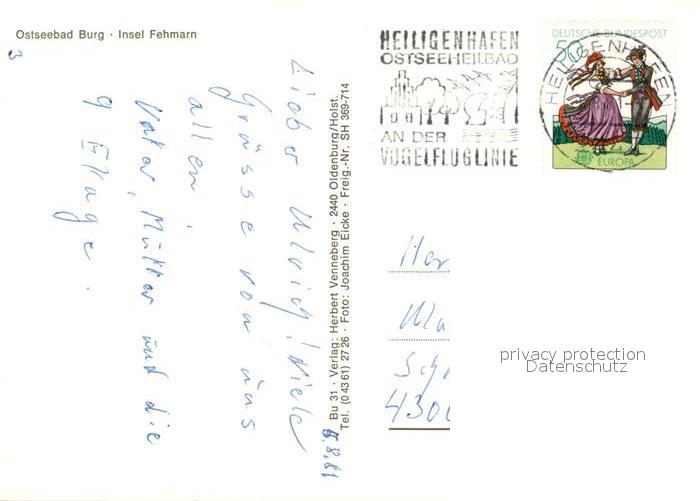 Ostseebad Burg · Insel Fehmarn
3
Lieber Ulrich! Viele
Grüsse von uns
allen!
Vater, Mutter und die
9
8.81
Bu 31 · Verlag: Herbert Venneberg · 2440 Oldenburg/Holst.
Tel. (0 43 61) 27 26 · Foto: Joachim Eicke · Freig.-Nr. SH 369-714
HEILIGENHAFEN
OSTSEEHEILBAD
AN DER
VOGELFLUGLINIE
DEUTSCHE BUNDESPOST
50
HEILIGENHAFEN
EUROPA
Her
Ma
Sch
430
privacy protection
Datenschutz